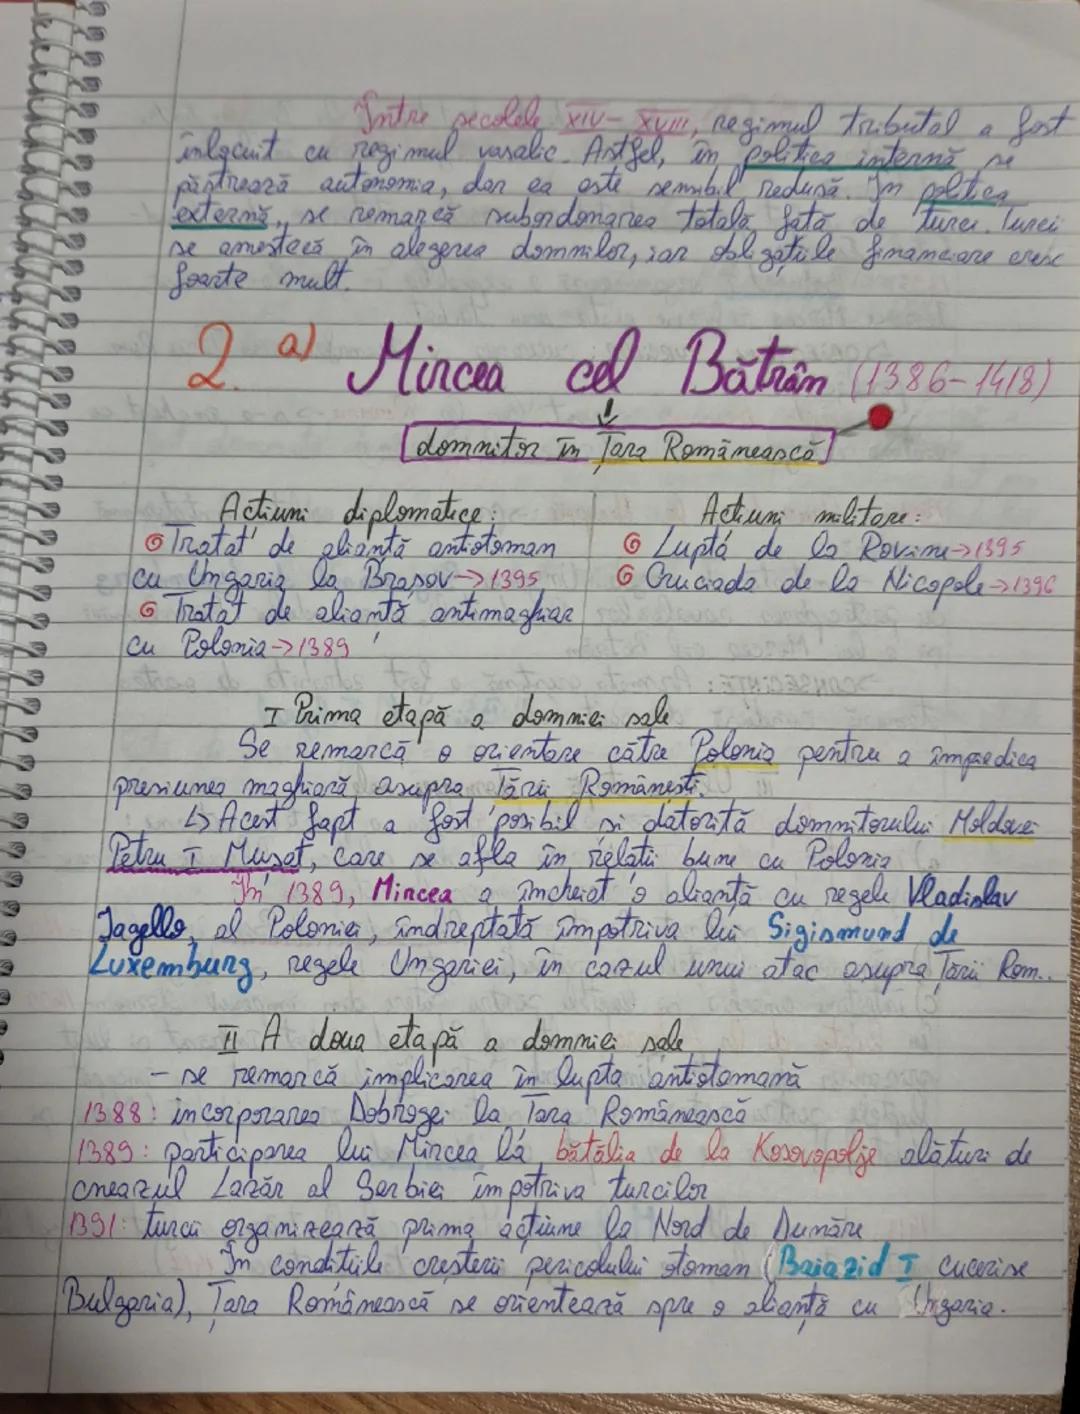 Între secolele XIV- XVIII, regimul tributal a fost
înlocuit cu regimul vasalic. Astfel, în politica internă se
păstrează autonomia, dar ea este semibil redusă. În politica
externă, se remarcă subordonarea totală față de turci. Turcii
se amestecă în alegerea domnilor, iar obligațiile financiare cresc
foarte mult.
2. a) Mircea cel Bătrân (1386-1418)
↓
domnitor în Țara Românească
Acțiuni diplomatice:
Tratat de alianță antiotoman
cu Ungaria la Brașov→1395
Tratat de alianță antimaghiar
cu Polonia→1389
Acțiuni militare:
Luptă de la Rovine→1395
Cruciada de la Nicopole→1396
I Prima etapă a domniei sale
Se remarcă o orientare către Polonia pentru a împiedica
presiunea maghiară asupra Țării Românești.
↳ Acest fapt a fost posibil și datorită domnitorului Moldovei
Petru I Mușat, care se afla în relații bune cu Polonia
În 1389, Mircea a încheiat o alianță cu regele Vladislav
Jagello, al Poloniei, îndreptată împotriva lui Sigismund de
Luxemburg, regele Ungariei, în cazul unui atac asupra Țării Rom..
II A doua etapă a domniei sale
- se remarcă implicarea în lupta antiotomană
1388: incorporarea Dobrogei la Țara Românească
1389: participarea lui Mircea la bătălia de la Kosovopolje alături de
cneazul Lazăr al Serbiei împotriva turcilor
1391: turcii organizează prima acțiune la Nord de Dunăre
În condițiile creșterii pericolului otoman (Baiazid I cucerise
Bulgaria), Țara Românească se orientează spre o alianță cu Ungaria.